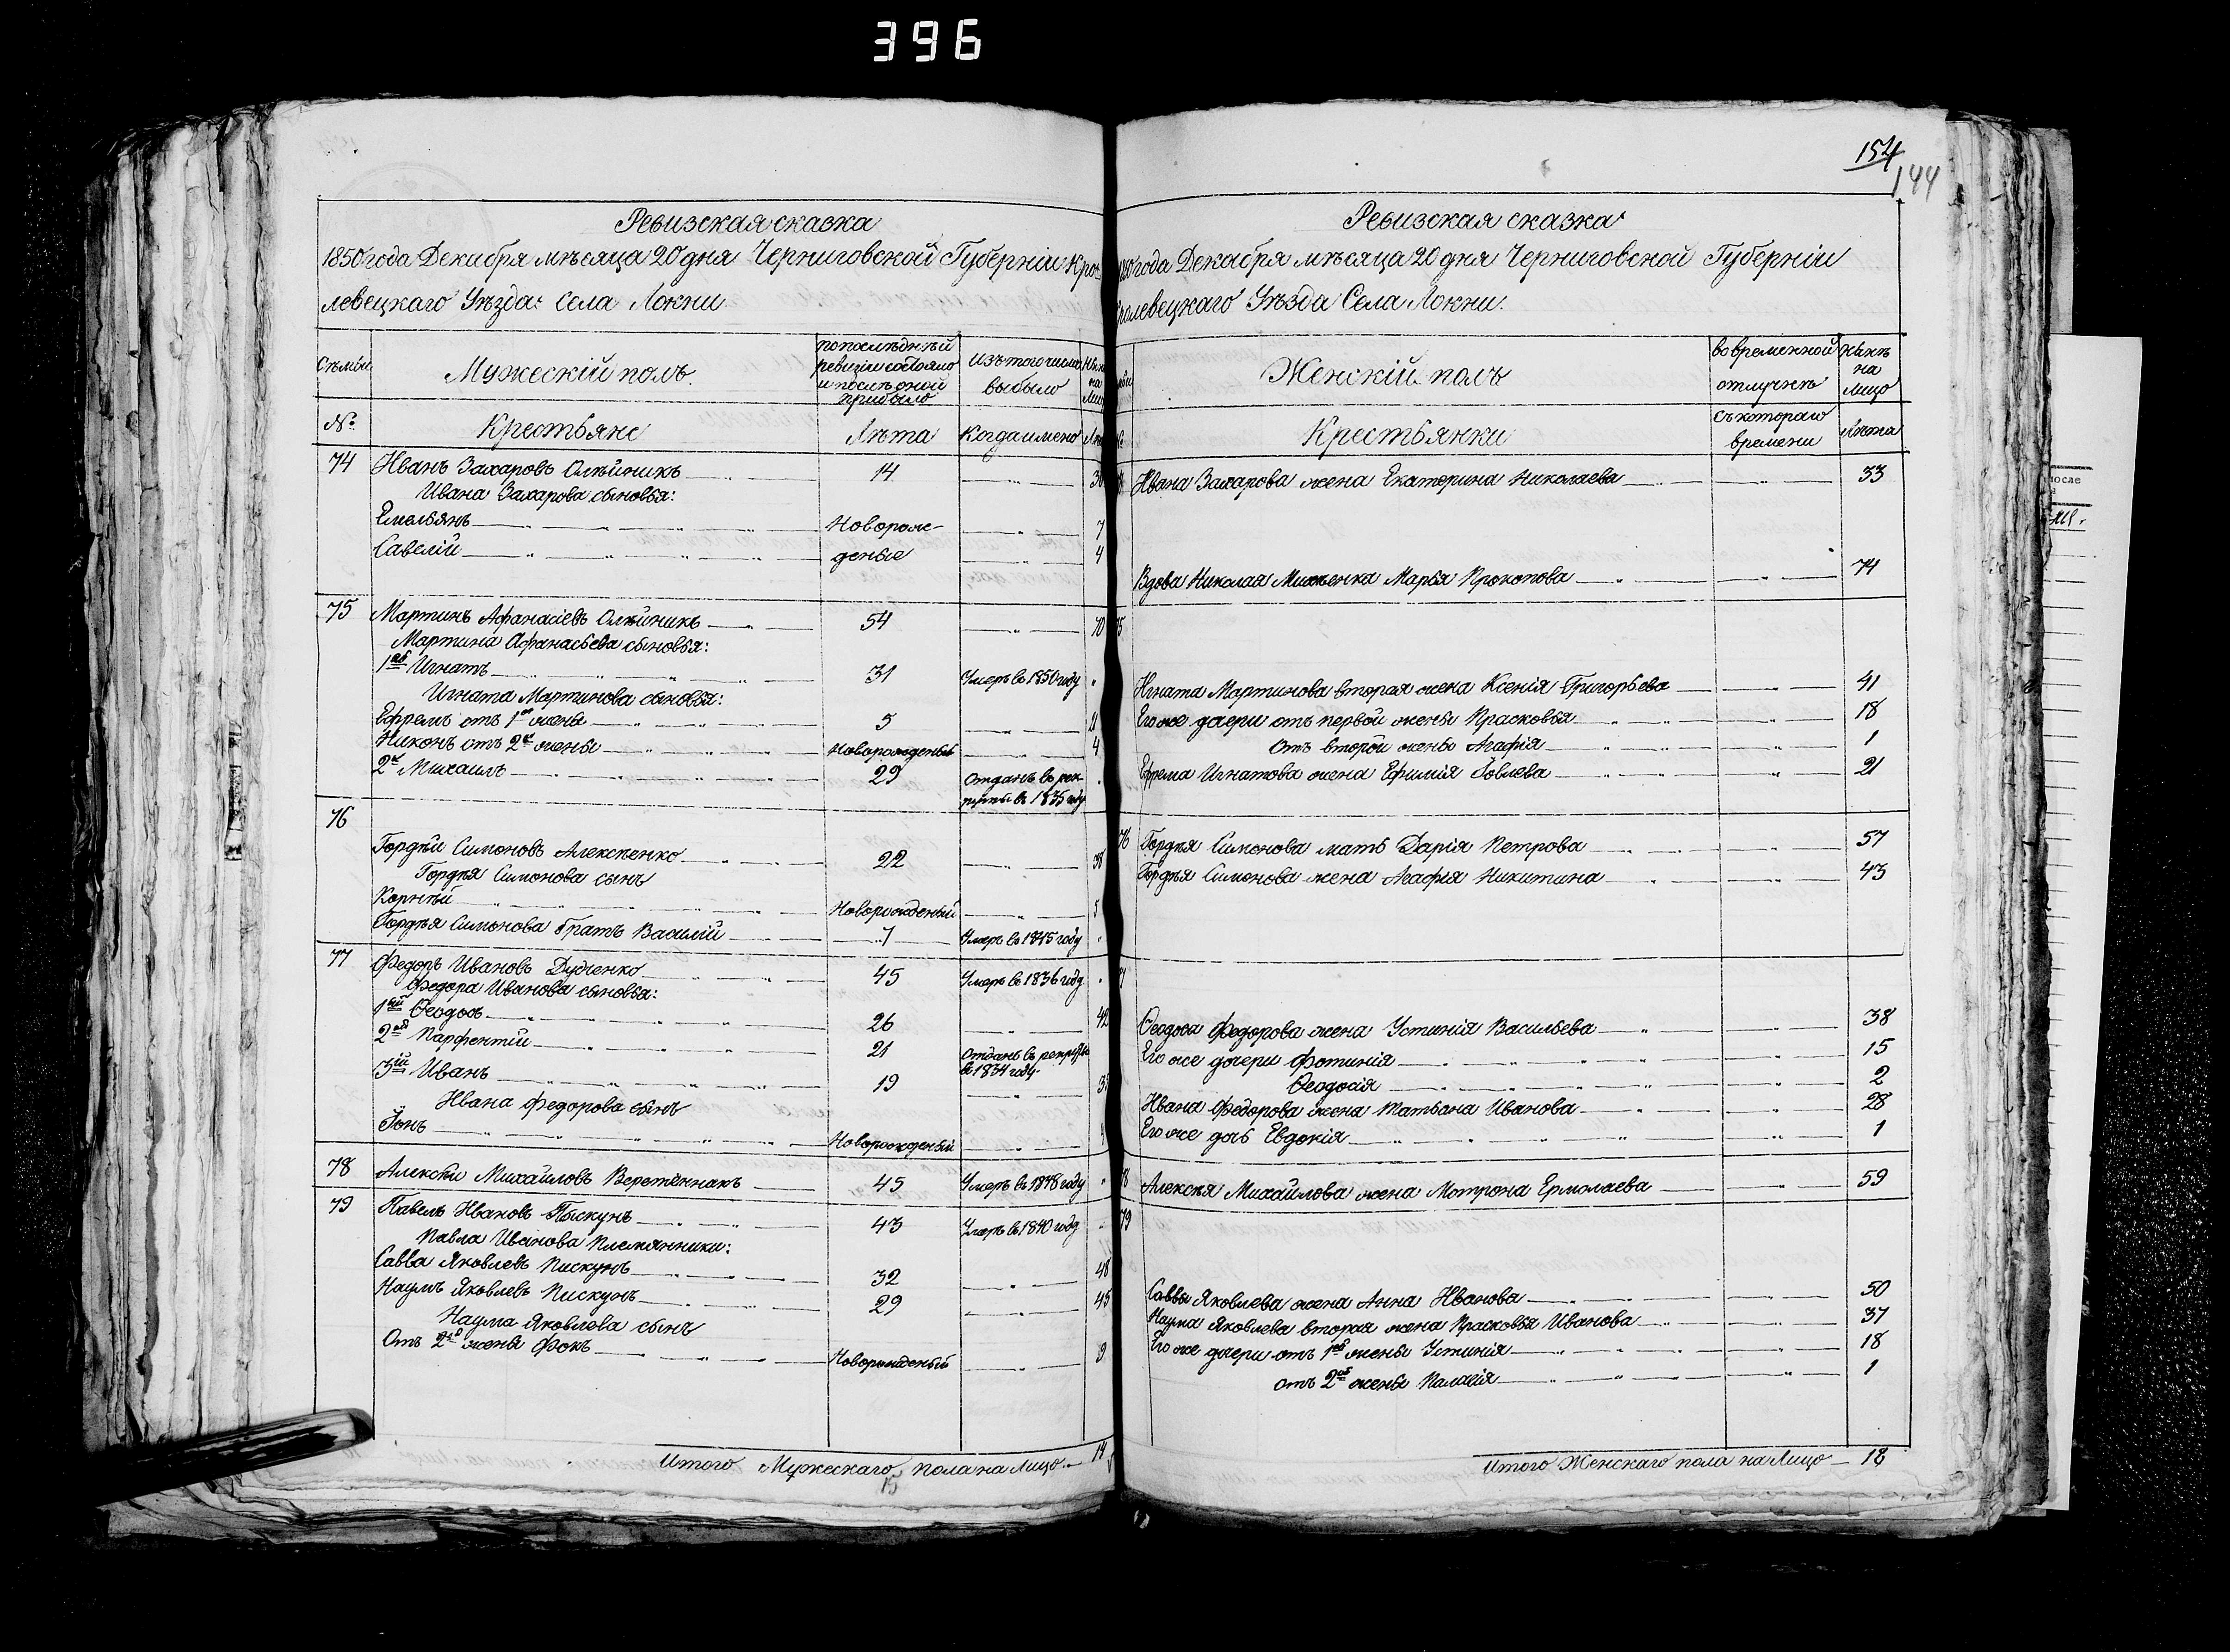 396
Ревизская сказка
1850 года Декабря мѣсяца 20 дня Черниговской Губерніи Кро-
левецкаго Уѣзда Села Локни.
Семьи
Мужескій полъ.
по послѣдней ревизіи состояло и послѣ оной прибыло
Изъ того числа выбыло
на
№
Крестьяне
Лѣта
Когда имено
74 Иванъ Захаровъ Олѣйникъ 14
Ивана Захарова сыновья:
Емельянъ Новорож- 7
Савелій деные 4
75 Мартинъ Афанасіевъ Олѣйникъ 54 70
Мартина Афанасьева сыновья:
1ый Игнатъ 31 Умеръ въ 1850 году
Игната Мартинова сыновья:
Ефремъ отъ 1ой жены 5 21
Никонъ отъ 2й жены Новорожденый 4
2й Михаилъ 29 Отданъ въ рек-
руты въ 1835 году
76
Гордѣй Симоновъ Алексѣенко 22 38
Гордѣя Симонова сынъ
Корнѣй Новорожденый 5
Гордѣя Симонова братъ Василій 7 Умеръ въ 1845 году
77 Федоръ Ивановъ Дудченко 45 Умеръ въ 1836 году
Федора Иванова сыновья:
1ый Феодосъ 26 42
2ой Парфентій 21 Отданъ въ рекруты
въ 1834 году
3ій Иванъ 19 35
Ивана Федорова сынъ
Іонъ Новорожденый
78 Алексѣй Михайловъ Веретѣнникъ 45 Умеръ въ 1848 году
79 Павелъ Ивановъ Пискунъ 43 Умеръ въ 1840 году
Павла Иванова Племянники:
Савва Яковлевъ Пискунъ 32 48
Наумъ Яковлевъ Пискунъ 29 45
Наума Яковлева сынъ
Отъ 2ой жены Фокъ Новорожденый 9
Итого Мужескаго пола на Лицо 14
15
154
144
Ревизская сказка
1850 года Декабря мѣсяца 20 дня Черниговской Губерніи
Кролевецкаго Уѣзда Села Локни.
Женскій полъ
во временной отлучкѣ
Нынѣ на Лицо
Крестьянки
съ котораго времени
Лѣта
Ивана Захарова жена Екатерина Николаева 33
Вдова Николая Михненка Марья Прокопова 74
75
Игната Мартинова вторая жена Ксенія Григорьева 41
Его же дочери отъ первой жены Прасковья 18
Отъ второй жены Агафія 1
Ефрема Игнатова жена Ефимія Іовлева 21
76 Гордѣя Симонова мать Дарія Петрова 57
Гордѣя Симонова жена Агафія Никитина 43
Феодоса Федорова жена Устинія Васильева 38
Его же дочери Фотинія 15
Феодосія 2
Ивана Федорова жена Татьяна Иванова 28
Его же дочь Евдокія 1
Алексѣя Михайлова жена Мотрона Ермолаева 59
79
Саввы Яковлева жена Анна Иванова 50
Наума Яковлева вторая жена Прасковья Иванова 37
Его же дочери отъ 1ой жены Устинія 18
отъ 2ой жены Палагія 1
Итого Женскаго пола на Лицо 18
после